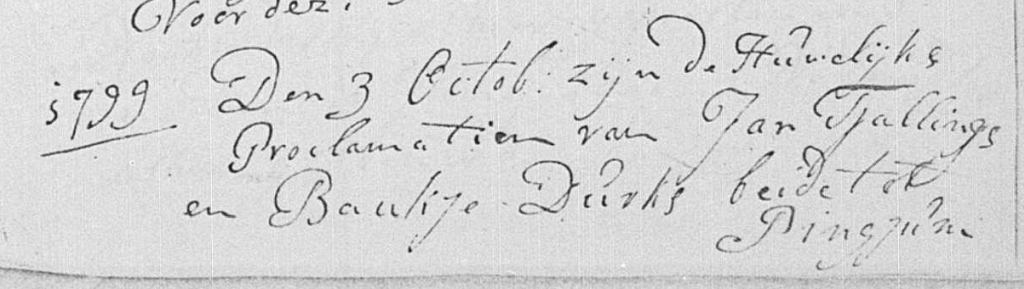 Voor dez.
1799 Den 3 Octob. zijn de Huwelijks
Proclamatien van Jan Tjallings
en Baukje Durks beide tot
Pingjum